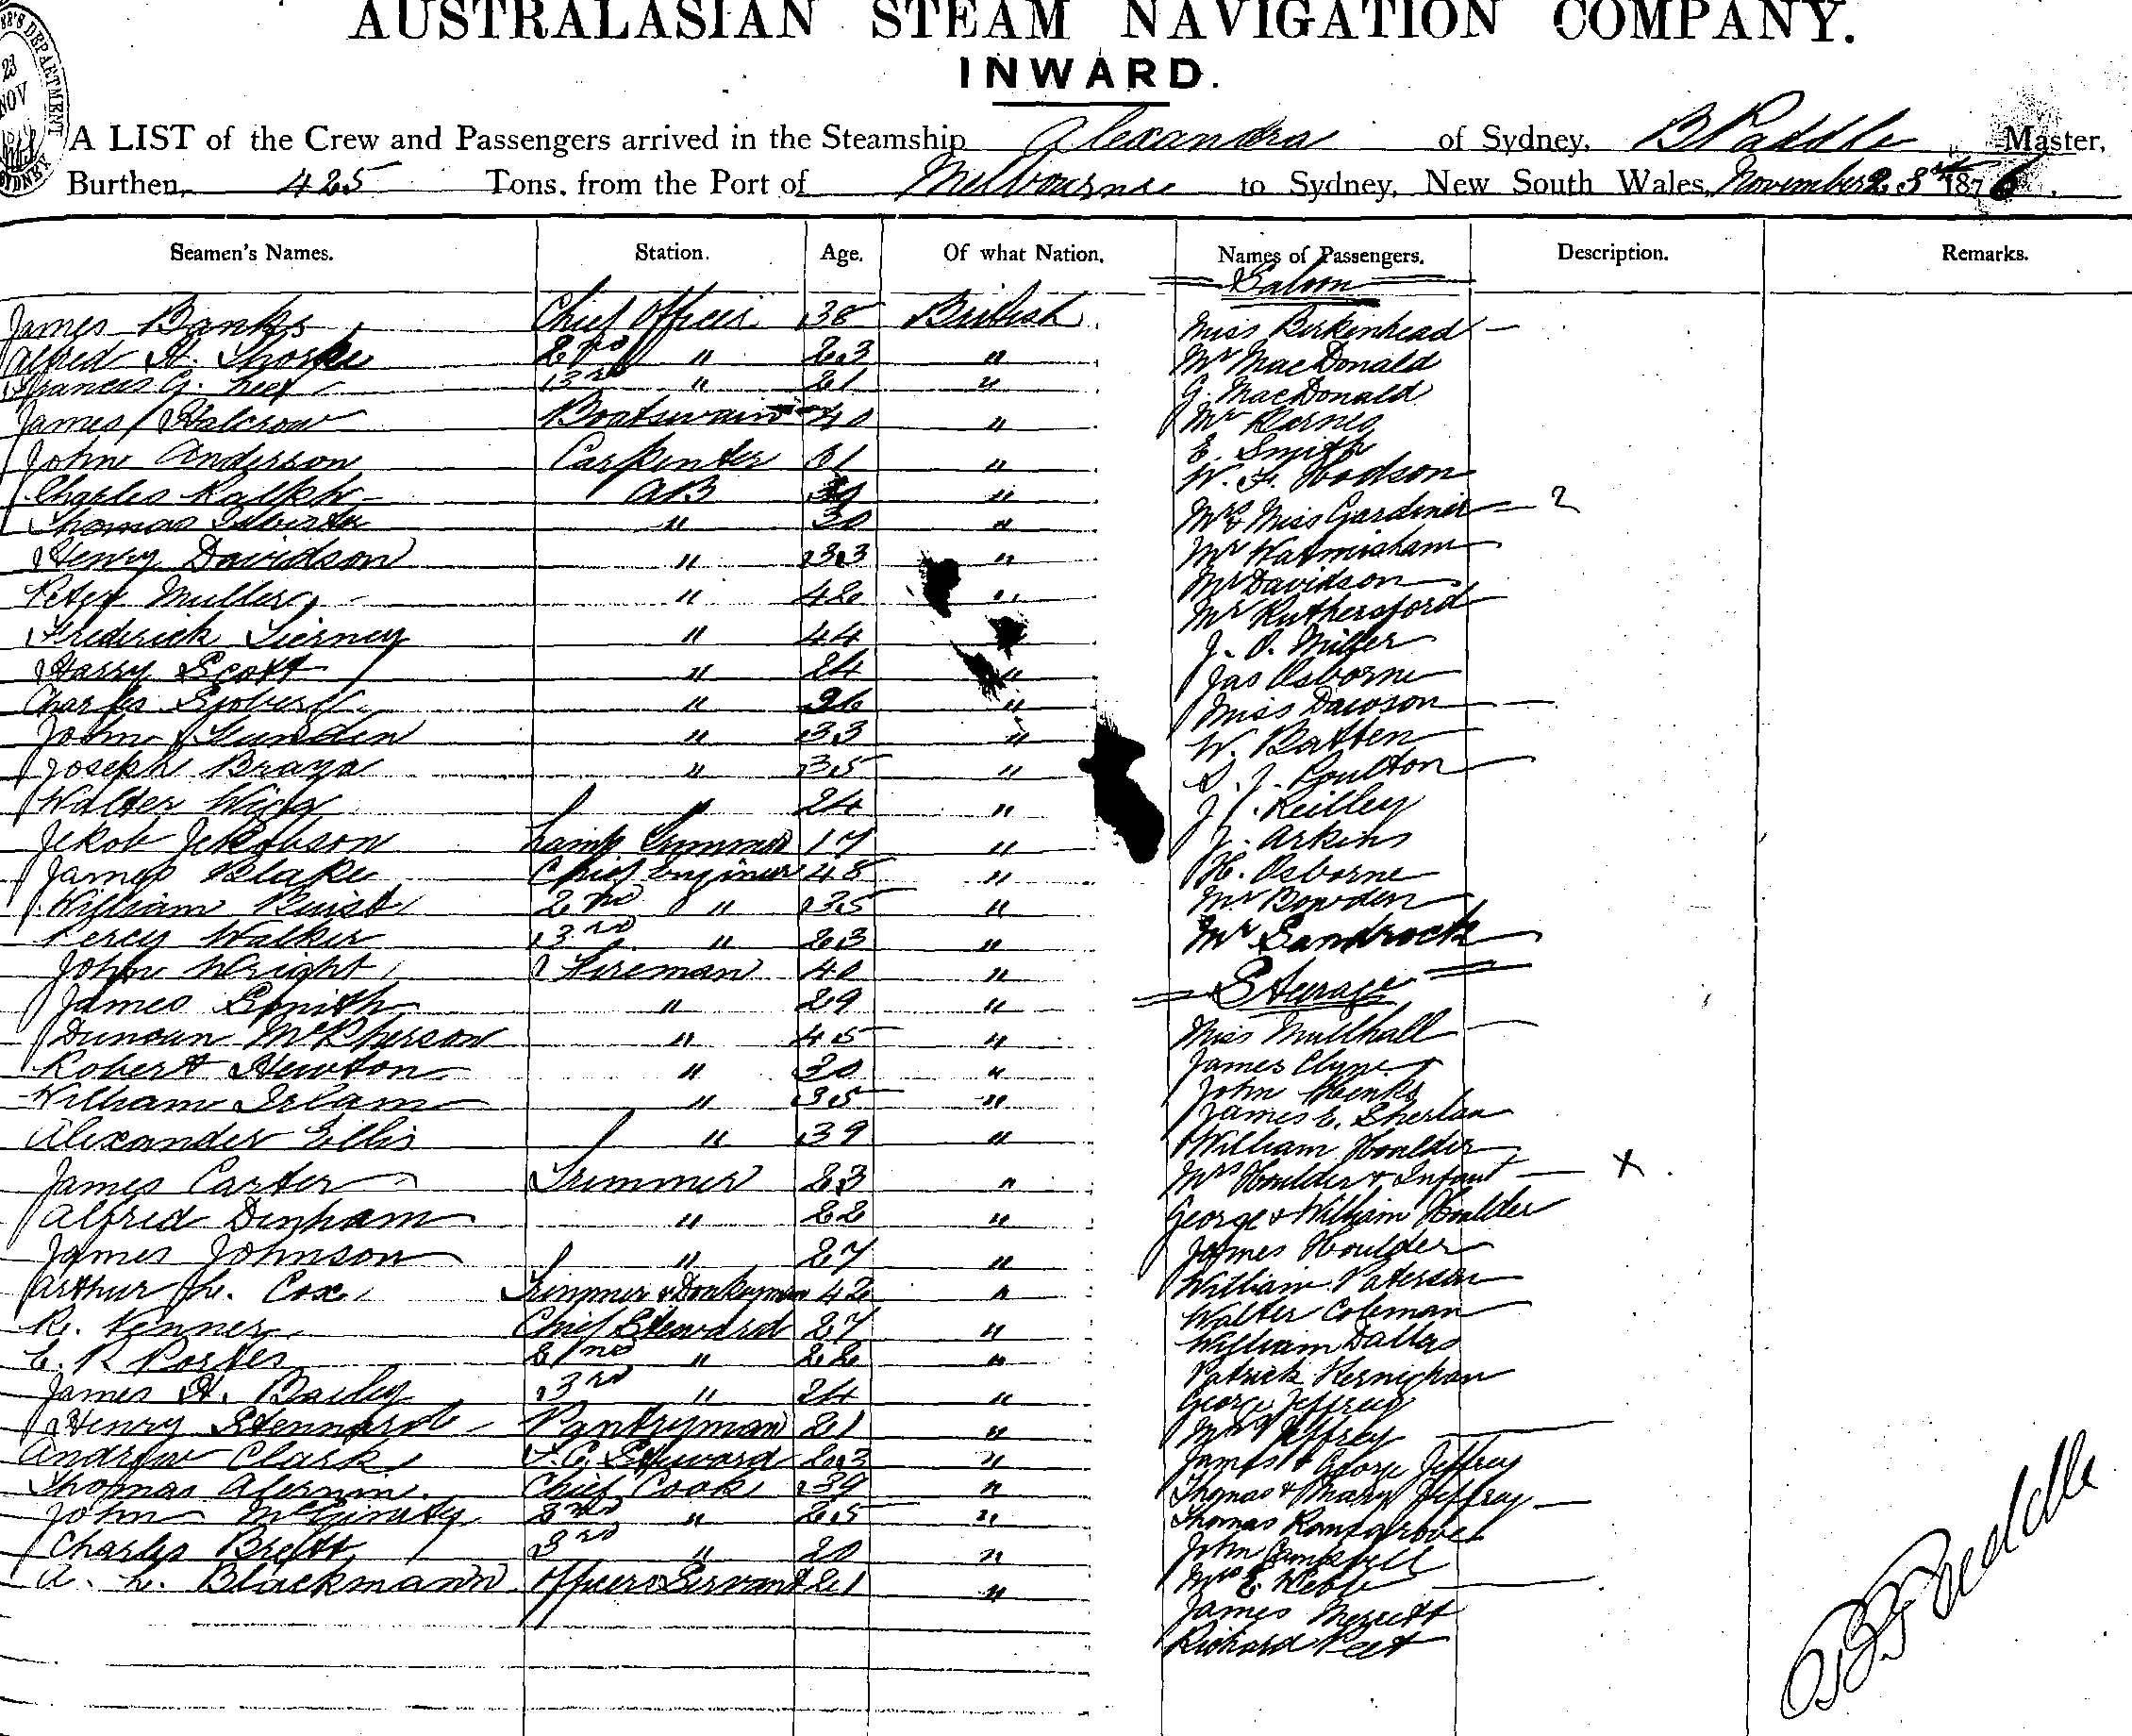 AUSTRALASIAN STEAM NAVIGATION COMPANY.
INWARD.
23
NOV
SYDNEY
A LIST of the Crew and Passengers arrived in the Steamship Alexandra of Sydney, B Paddle Master,
Burthen, 425 Tons, from the Port of Melbourne to Sydney, New South Wales, November 23rd 1876.
Seamen's Names. Station. Age. Of what Nation. Names of Passengers. Description. Remarks.
Saloon
James Banks Chief Officer 38 British Miss Birkenhead
Alfred H. Thorpe 2nd " 23 " Mr MacDonald
Francis G. 3rd " 21 " G. MacDonald
James Halcrow Boatswain 40 " Mr
John Anderson Carpenter 31 " E. Smith
Charles AB " W. Hodson
Thomas " 30 " Mrs & Miss Gardiner 2
Henry Davidson " 33 " Mr Walmisham
Peter Muller " 42 " Mr Davidson
Mr Rutherford
Frederick Tierney " 44 " J. Miller
Harry Scott " 24 " Jas Osborne
Charles " 26 " Miss Dawson
John " 33 " W. Batten
Joseph Braza " 35 " Poulton
Walter Wigg " 24 " J. Reilley
Jekob Jekobson Lamp Trimmer 17 " J. Arkins
James Blake Chief Engineer 48 " H. Osborne
William Buist 2nd " 35 " Mr Bowden
Percy Walker 3rd " 23 " Mr Sandrock
John Wright Fireman 40 "
Steerage
James Smith " 29 "
Duncan McPherson " 45 " Miss Mullhall
Robert Newton " 30 " James Clyne
John Hinks
William Irlam " 35 " James E. Sherlan
Alexander Ellis " 39 " William Houlder
James Carter Trimmer 23 " Mrs Houlder & Infant X
Alfred Dinham " 22 " George & William Houlder
James Johnson " 27 " James Houlder
Arthur Cox Trimmer & Donkeyman 42 " William Paterson
Walter Coleman
R. Kenner Chief Steward 27 " William Dallas
E. R Porter 2nd " 22 " Patrick Kernighan
James H. Bailey 3rd " 24 " George Jeffrey
Henry Stennard Pantryman 21 " Mrs Jeffrey
Andrew Clark Steward 23 " James & George Jeffrey
Thomas Chief Cook 39 " Thomas & Mary Jeffrey
John McGinity 2nd " 25 " Thomas
Charles Brett 3rd " 20 " John Campbell
A. L. Blackmann Officers Servant 21 " Mrs E Webb
James Merrett
Richard Peet
B Paddle